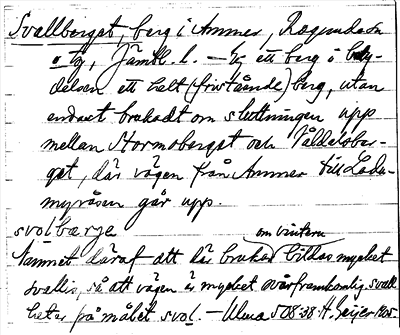 Svallberget, berg i Ammer, Ragunda sn
o tg, Jämtl. l. — Ej ett berg i bety-
delsen ett helt (fristående) berg, utan
endast brukadt om sluttningen upp
mellan Stormoberget och Våldalsber-
get, där vägen från Ammer till Ladu-
myråsen går upp.
svolbærʒe
om vintern
Namnet däraf att där brukar bildas mycket
svallis, så att vägen är mycket svårframkomlig. svall
heter på målet svol. — Ulma 508:38. H. Geijer 1905.